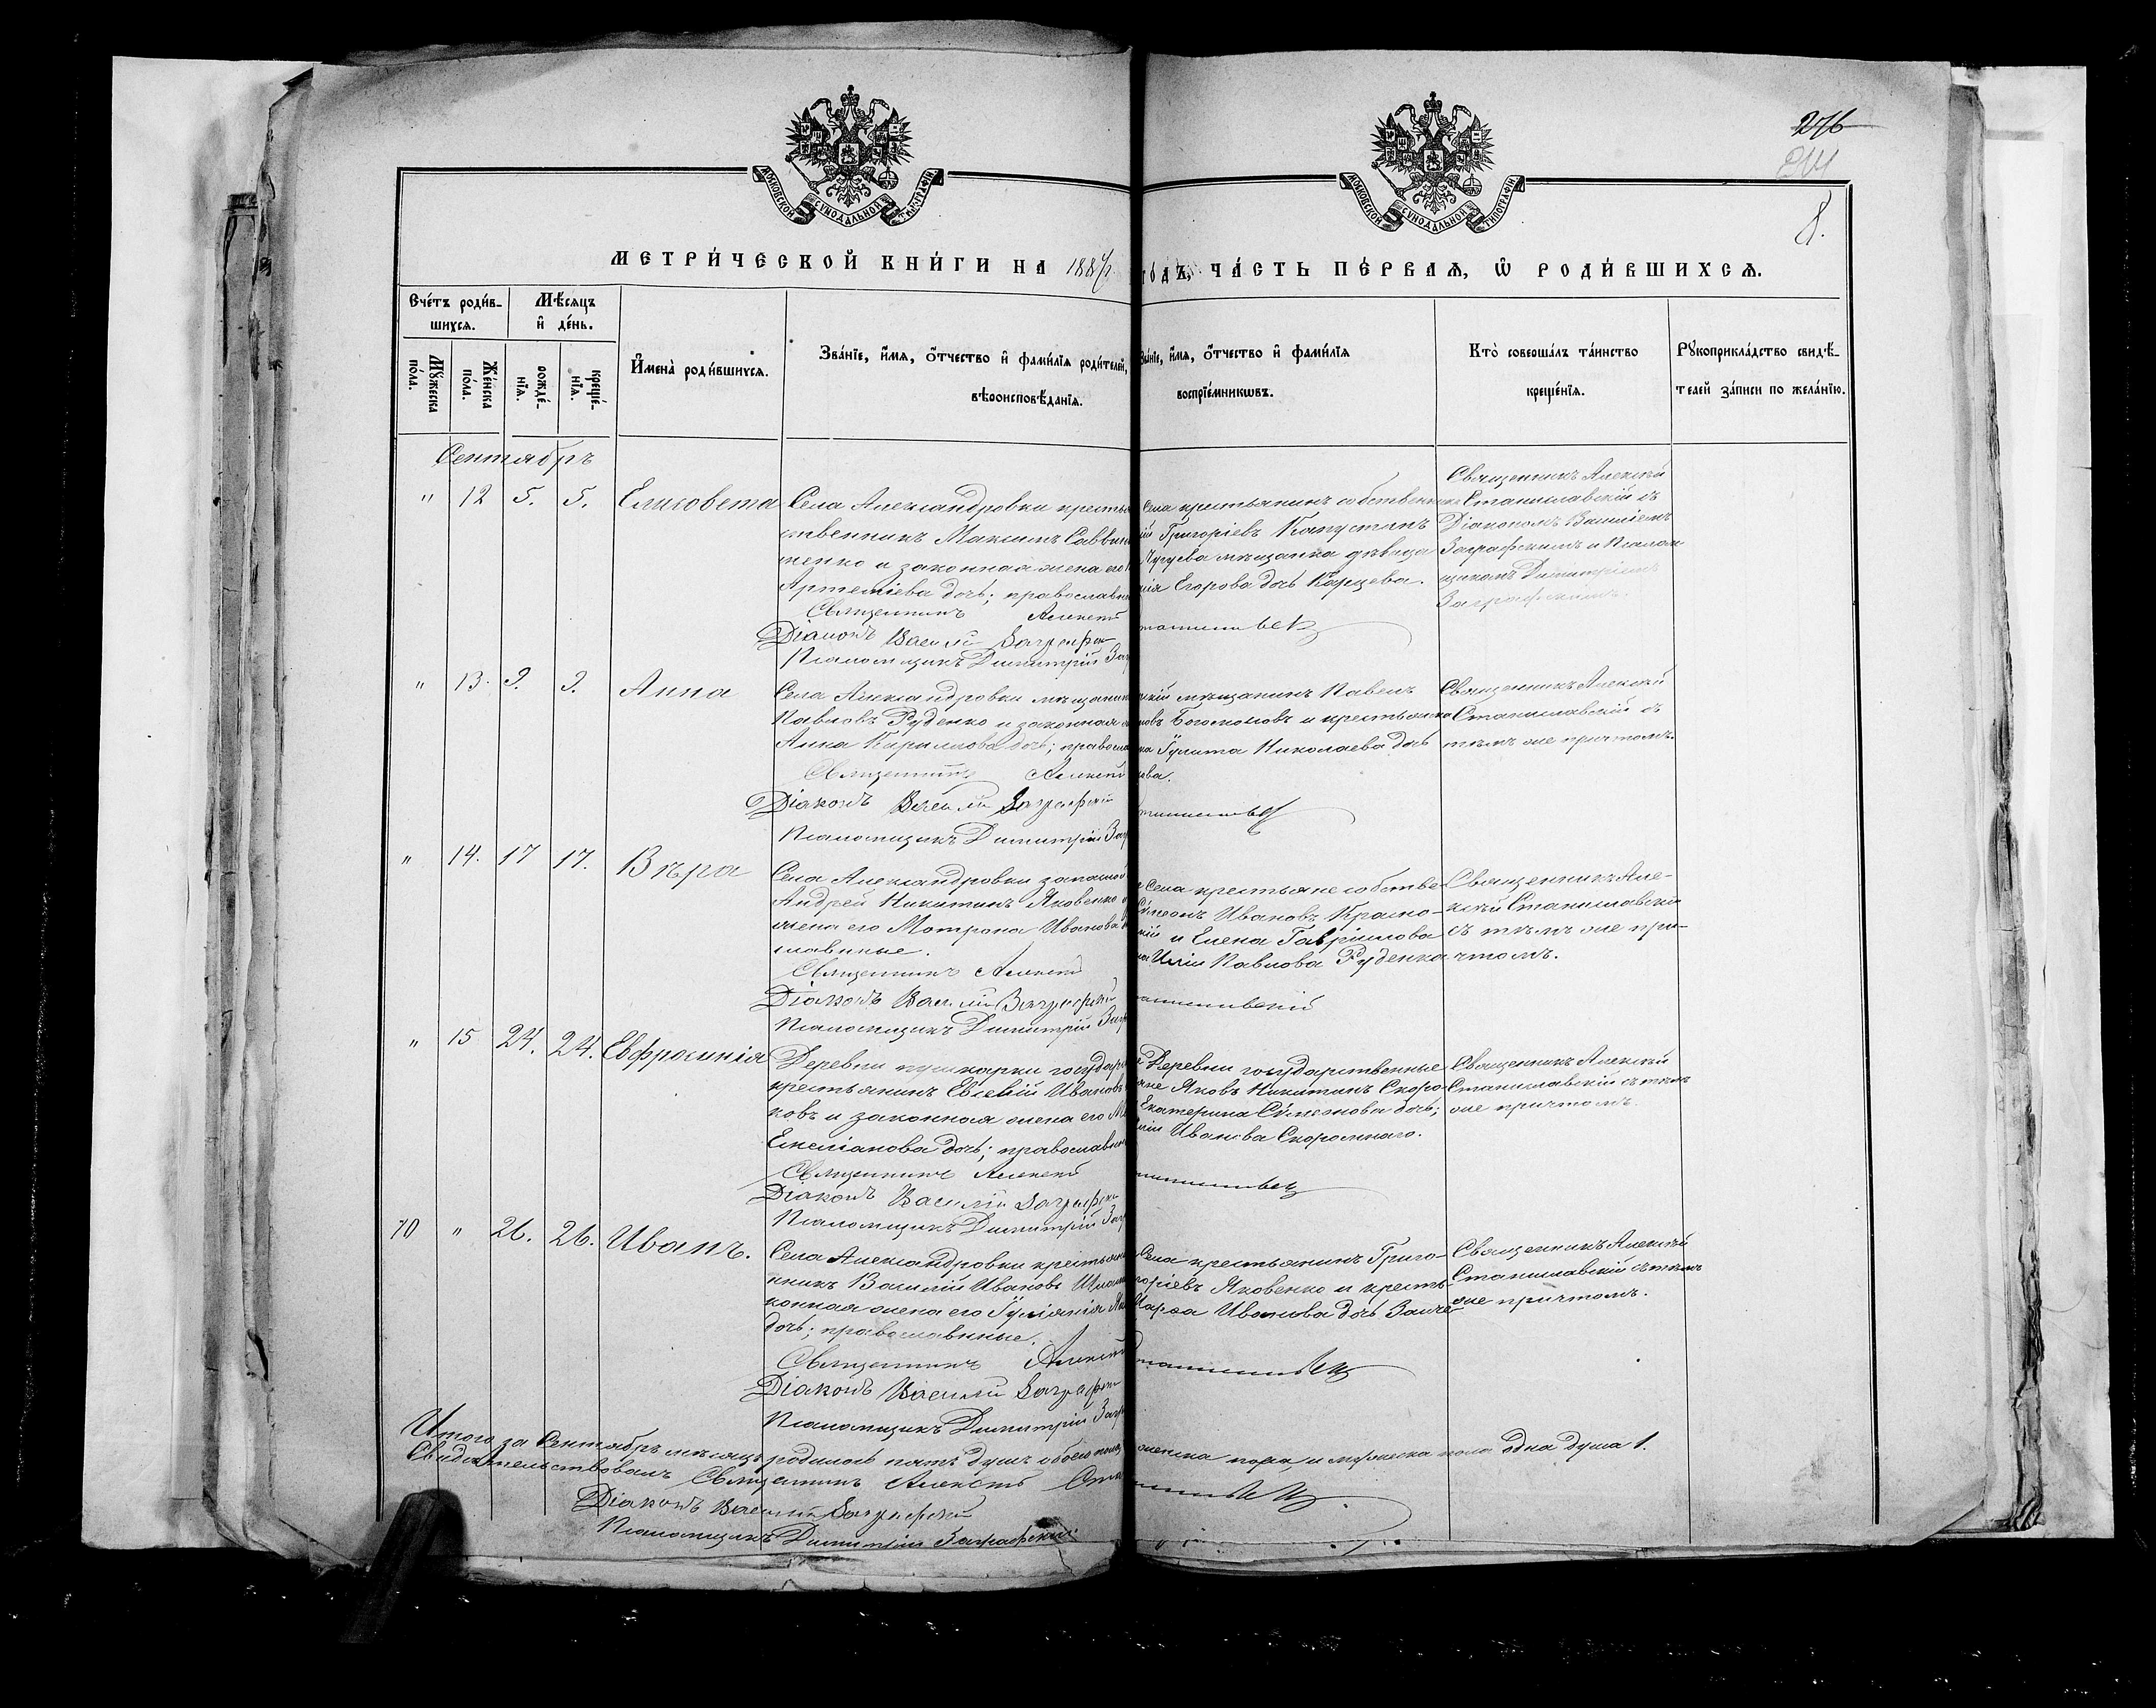 276
8.
МОСКОВСКОЙ СУНОДАЛЬНОЙ ТИПОГРАФІИ
МОСКОВСКОЙ СУНОДАЛЬНОЙ ТИПОГРАФІИ
МЕТРИ́ЧЕСКОЙ КНИ́ГИ НА 1884 го́дъ, ЧА́СТЬ ПЕ́РВАЯ, Ѡ РОДИ́ВШИХСЯ.
Счетъ роди́в-
шихся.
Мѣсяцъ
и де́нь.
Му́жеска по́ла.
Же́нска по́ла.
рожде́-
нія.
креще́-
нія.
Имена̀ роди́вшихся.
Зва́ніе, и́мя, о́тчество и фами́лія роди́телей,
вѣроисповѣ́данія.
Зва́ніе, и́мя, о́тчество и фами́лія
воспріе́мниковъ.
Кто̀ соверша́лъ та́инство
креще́нія.
Рукоприкла́дство свидѣ́-
телей за́писи по жела́нію.
Сентябрь
" 12 5. 5. Елисовета
Села Александровки крестья
ственникъ Максимъ Савви
тенко и законная жена его
Артеміева дочь; православн
Священникъ Алексѣй
Діаконъ Василій Заграфск
Псаломщикъ Димитрій Заг
Села крестьянинъ собственникъ
ій Григоріевъ Капустинъ
Чугуева мѣщанка дѣвица
нія Егорова дочь Карцева.
Священникъ Алексѣй
Станиславскій съ
Діакономъ Василіемъ
Заграфскимъ и Псалом
щикомъ Димитріемъ
Заграфскимъ.
" 13. 9. 9. Анна
Села Александровки мѣщанин
Павловъ Руденко и законная
Анна Кириллова дочь; правосла
Священникъ Алексѣй
Діаконъ Василій Заграфскій
Псаломщикъ Димитрій Заг
скій мѣщанинъ Павелъ
новъ Богомоловъ и крестьянка
ка Гулита Николаева дочь
ова.
Священникъ Алексѣй
Станиславскій съ
тѣмъ же причтомъ.
" 14. 17 17. Вѣра
Села Александровки запасной
Андрей Никитинъ Яковенко
жена его Мотрона Иванова
славные.
Священникъ Алексѣй
Діаконъ Василій Заграфскій
Псаломщикъ Димитрій Заг
Села крестьяне собстве
Сѵмеонъ Ивановъ Красно-
кій и Елена Гавріилова
на Иліи Павлова Руденка
Станиславскій
Священникъ Але-
ксѣй Станиславскій
съ тѣмъ же при-
чтомъ.
" 15 24. 24. Евфросинія
Деревни пушкарки государ
крестьянинъ Евсевій Ивановъ
ковъ и законная жена его
Емеліанова дочь; православн
Священникъ Алексѣй
Діаконъ Василій Заграфск
Псаломщикъ Димитрій Заг
Деревни государственные
яне Яковъ Никитинъ Скоро-
Екатерина Сѵмеонова дочь;
иліи Иванова Скоромнаго.
Священникъ Алексѣй
Станиславскій съ тѣмъ
же причтомъ.
10 " 26. 26. Иванъ.
Села Александровки крестьян
нникъ Василій Ивановъ
конная жена его Гуліянія
дочь; православные.
Священникъ Алексѣй
Діаконъ Василій Заграфск
Псаломщикъ Димитрій Заг
Села крестьянинъ Григо-
горіевъ Яковенко и кресть
Марѳа Иванова дочь
Священникъ Алексѣй
Станиславскій съ тѣмъ
же причтомъ.
Итого за Сентябрь мѣсяцъ родилось пять душъ обоего пола женска пола, и мужеска пола одна душа 1.
Свидѣтельствовали Священникъ Алексѣй
Діаконъ Василій Заграфскій
Псаломщикъ Димитрій Заграфскій